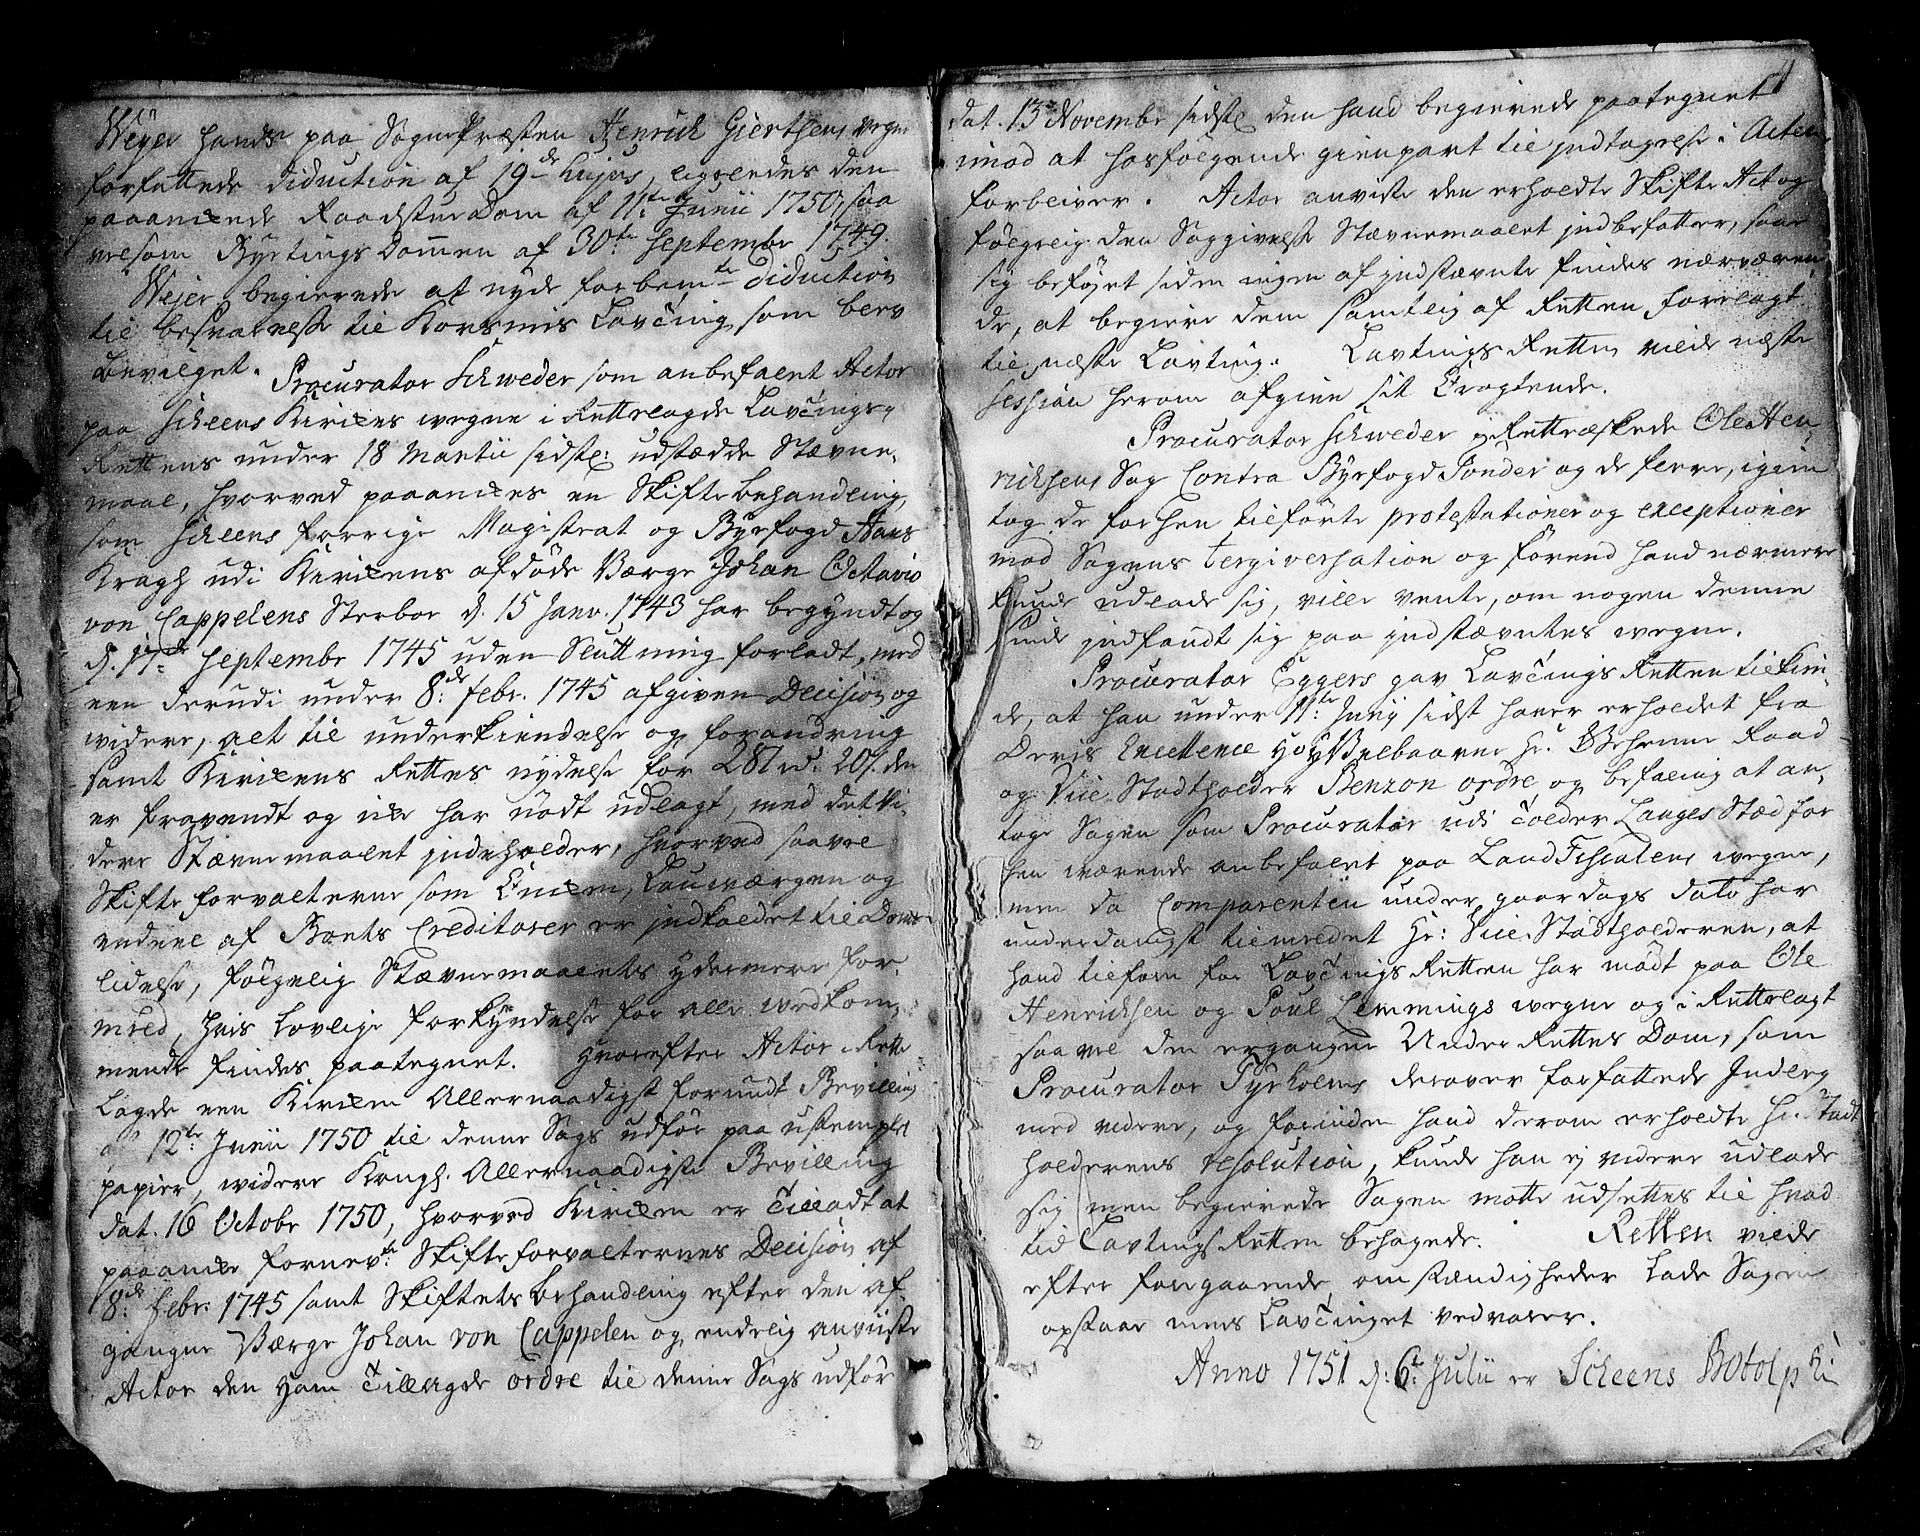 Weyer hands paa SognePræsten Henrick Giertsens vegne
forfattede Diduction af 19de hujus, ligeledes den
paaankede RaadstueDom af 11te Junii 1750, saa
velsom Byetings Dommen af 30te Septembr 1749.
Wejer begierede at nyde forbemte Diduction
til besvarelse til Korsmis Lavting, som blev
bevilget. Procurator Schweder som anbefalet Actor
paa Scheens Kirkes vegne i Rettelagde Lavtings
Rettens under 18 Martii sidstl: udstædde Stævne-
maal, hvorved paaankes en Skifte behandling,
som Scheens forrige Magistrat og Byefogd Hans
Kragh udi Kirkens afdøde Værge Johan Octavio
von Cappelens Sterboe d. 15 Janv. 1743 har begyndt og
d. 17de Septembr 1745 uden Slutning forladt, med
een derudi under 8de febr. 1745 afgiven Decision og
widere, alt til underkiendelse og forandring
samt Kirkens Rettes nydelse for 287 rd: 20 s. den
er fravendt og ikke har nødt udlagt, med det vi-
dere Stævnemaalet indeholder, hvorved saavel
Skifteforvalterne som Enken, Lauværgen og
endeel af Boets Creditorer er indkaldet til Doms
lidelse, følgelig Stævnemaalets ydermere for-
meld, hvis lovlige forkyndelse for alle vedkom-
mende findes paategnet. Hvorefter Actor i Rette
lagde een Kirken Allernaadigst forundt Bevilling
af 12te Junii 1750 til denne Sags udfør paa ustemplet
papier, widere Kongl. Allernaadigste Bevilling
dat. 16 Octobr 1750, hvorved Kirken er Tilladt at
paaanke fornevnte Skifteforvalternes Decision af
8de Febr. 1745 samt Skiftets behandling efter den af-
gangne Værge Johan von Cappelen og endelig anviiste
Actor den ham Tillagde ordre til denne Sags udfør
dat. 13de Novembr sidstl. den hand begierede paategnet
imod at hosfølgende gienpart til indtagelse i Acten
forbliver. Actor anviste den erholdte Skifte Act og
følgelig den Saggivelse Stævnemaalet indbefatter, saae
sig beføjet siden ingen af indstævnte findes nærværen-
de, at begiere dem samtlig af Retten forelagt
til næste Lavting. Lavtings Retten vilde næste
Session herom afgive sit Eragtende.
Procurator Schweder i Retteæskede Ole Hen-
richsens Sag Contra Byefogd Ponder og de flere, igien
tog de forhen tilførte protestationer og exceptioner
mod Sagens tergiversation og førend hand nærmere
kunde udlade sig, ville vente, om nogen denne
sinde indfandt sig paa indstævntes vegne.
Procurator Eggers gav Lavtings Retten tilkien-
de, at han under 11te Junij sidst haver erholdet fra
Deris Excellence HøyVelbaarne Hr. Geheime Raad
og Vice Stadtholder Benzon ordre og befaling at an-
tage Sagen som Procurator udi Tolder Langes Stæd for
hen værende anbefalet paa LandFiscalens vegne,
men da Comparenten under gaardags dato har
underdanigst tilmeldet Hr: Vice Stadtholderen, at
hand tilforn for Lavtings Retten har mødt paa Ole
Henrichsen og Poul Lemmings vegne og i Rettelagt
saa vel den ergangne Under Rettes Dom, som
Procurator Tyrholms derover forfattede Indlæg
med videre, og forinden hand derom erholdte Hr. Stadt
holderens resolution, kunde han ej videre udlade
sig men begierede Sagen motte udsettes til hvad
tid Lavtings Retten behagede. Retten vilde
efter foregaaende omstændigheder lade Sagen
opstaae mens Lavtinget vedvarer.
Anno 1751 d: 6te Julii er Scheens Botolphi